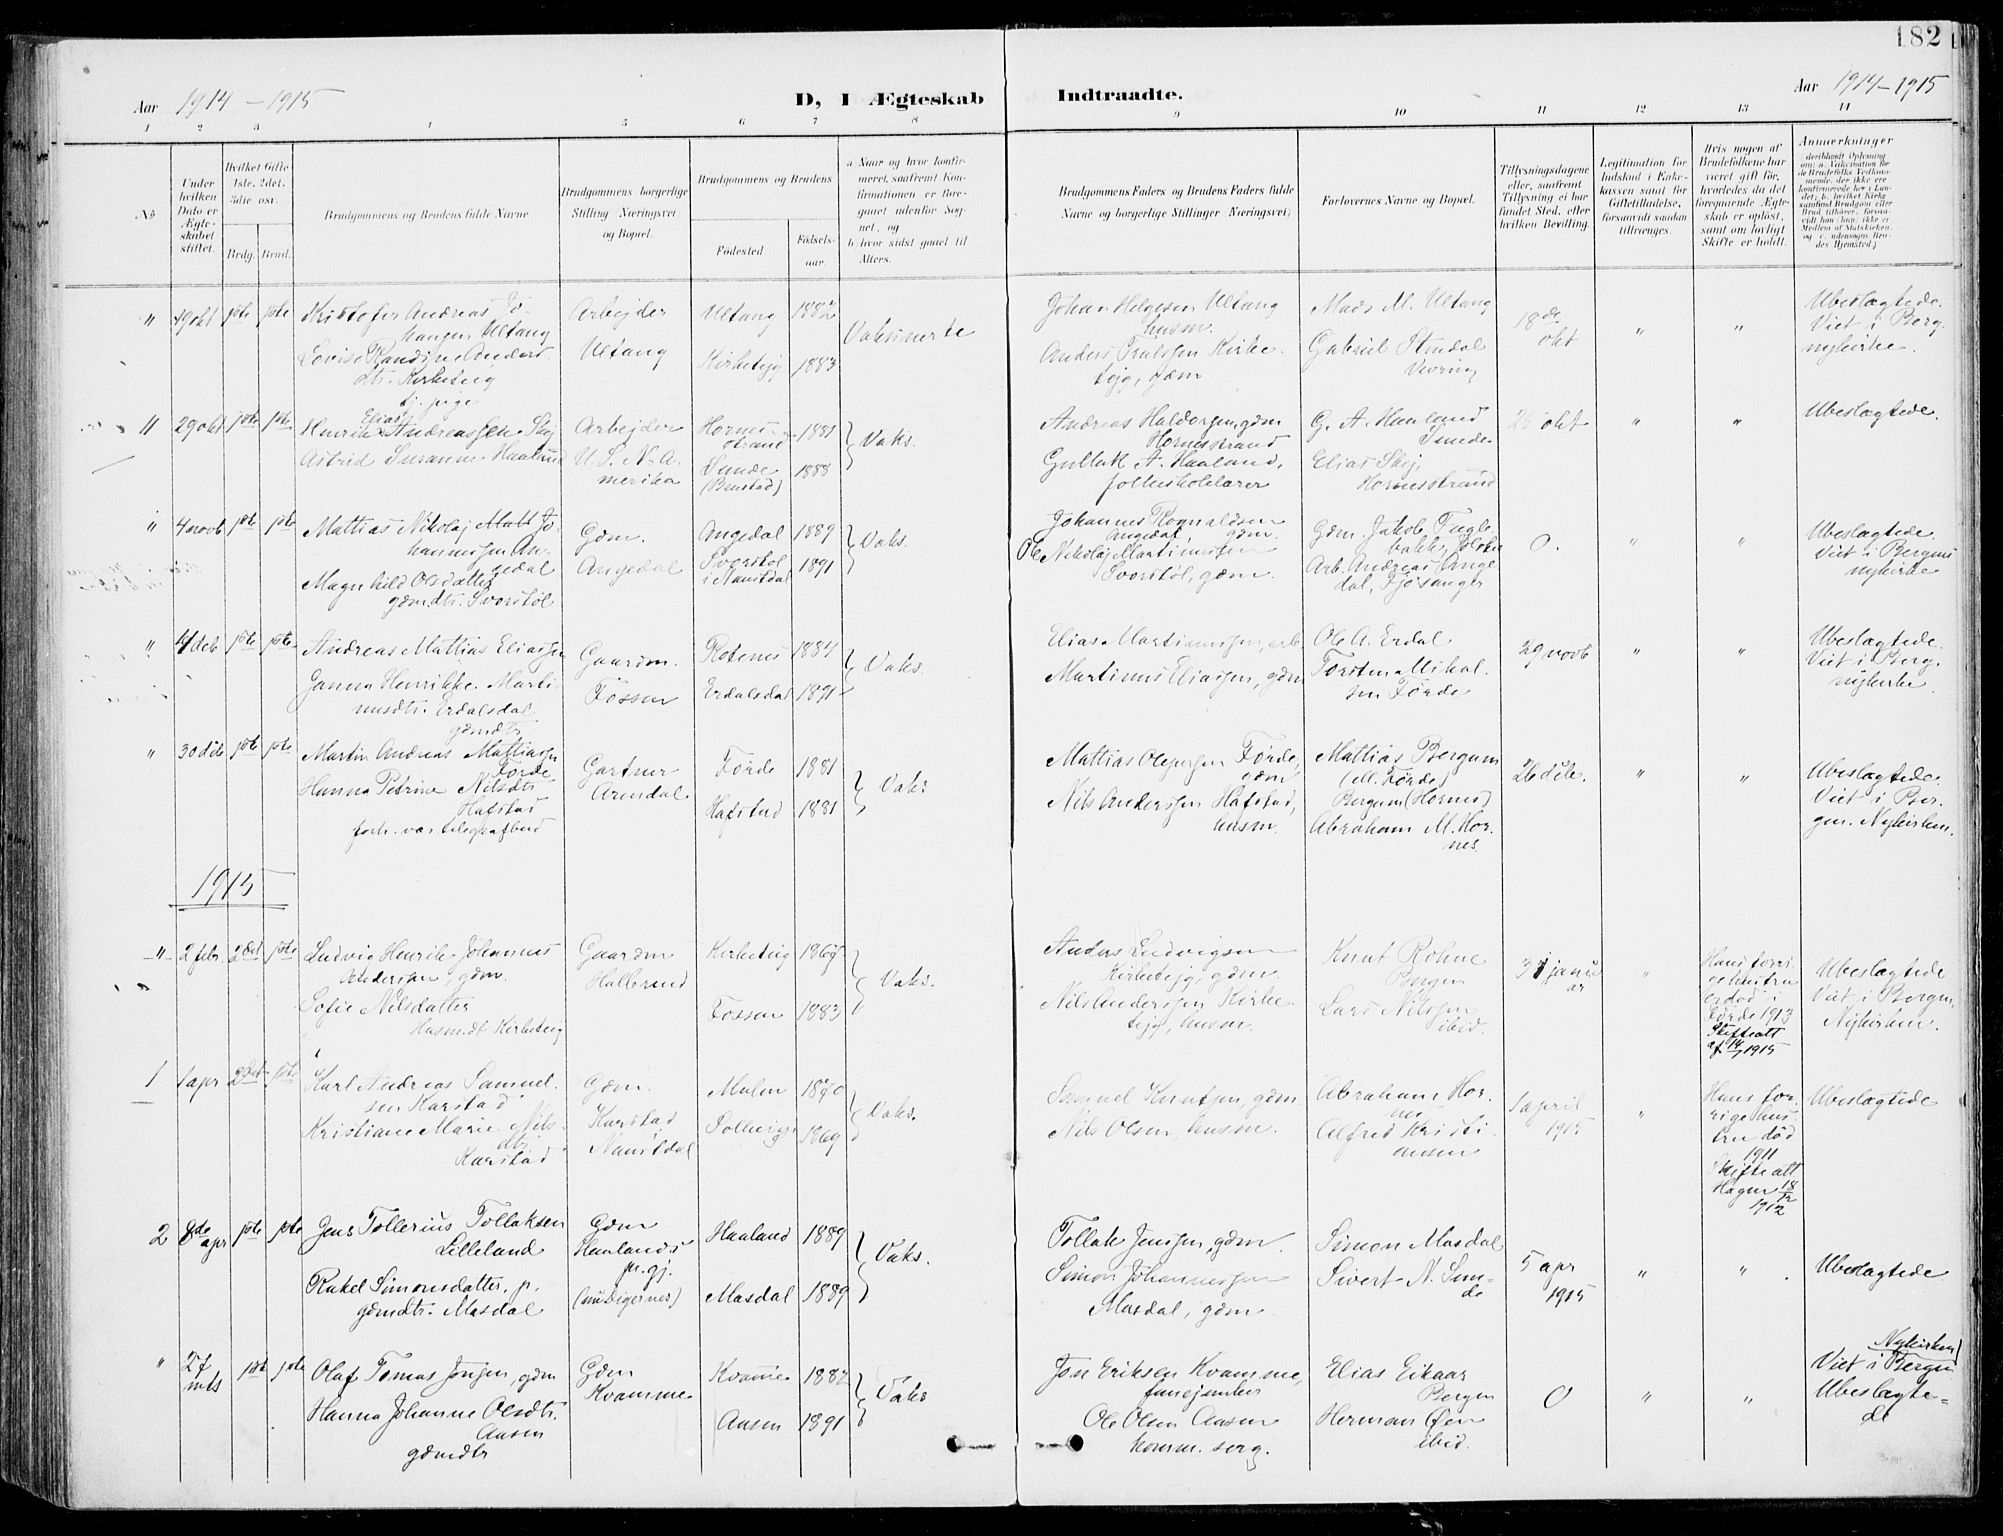 182
Aar 1914 - 1915
D, I Ægteskab
Indtraadte.
Aar 1914 - 1915
1 2 3 4 5 6 7 8 9 10 11 12 13 14
No
Under hvilken Dato er Ægteskabet stiftet.
Hvilket Gifte 1ste, 2det. 3die osv.
Brdg. Brud.
Brudgommens og Brudens fulde Navne
Brudgommens borgerlige Stilling Næringsvei og Bopæl.
Brudgommens og Brudens
Fødested. Fødselsaar.
a Naar og hvor konfirmeret, saafremt Konfirmationen er foregaaet udenfor Sognet, og
b. hvor sidst gaaet til Alters.
Brudgommens Faders og Brudens Faders fulde Navne og borgerlige Stillinger Næringsvei)
Forlovernes Navne og Bopæl.
Tillysningsdagene eller, saafremt Tillysning ei har fundet Sted, efter hvilken Bevilling.
Legitimation for Indskud i Enkekassen samt for Giftetilladelse, forsaavidt saadan tiltrænges.
Hvis nogen af Brudefolkene har været gift før, hvorledes da det foregaaende Ægteskab er opløst, samt om lovligt Skifte er holdt.
Anmærkninger
" 19 okt 1ste 1ste Kristofer Andreas Johansen Ultang
Lovise Randine Andersdtr. Kirketeig
tj. pige
Arbejder
Ultang
Ultang 1882
Kirketejg 1883
Vaksinerte
Johan Helgesen Ultang
husm.
Anders Trulssen Kirketejg, gdm
Mads M. Ultang
Gabriel Strudal
Vevring
18de okt
" "
Ubeslægtede.
Viet i Berg. nykirke.
11 29 okt 1ste 1ste Henrik Elias Andreassen Skej
Astrid Susanne Haaland
Arbejder
U. S. N. Amerika
Hornesstrand 1881
Sunde 1883
Vaks.
Andreas Haldorsen, gdm
Hornesstrand
Gullak A. Haaland,
folkeskolelærer
G. A. Haaland
Sunde
Elias Skej,
Hornesstrand
25 okt
" "
Ubeslægtede.
" 4 novb 1ste 1ste Mattias Nikolaj Johannessen Angedal
Magnhild Olsdatter
gdmdtr. Svorstøl
Gdm.
Angedal
Angedal 1889
Svorstøl i Naustdal 1891
Vaks.
Johannes Rognaldsen
Angedal, gdm.
Ole Nikolaj Martinussen
Svorstøl, gdm.
Gdm. Jakob Fuglebakk,
Arb. Andreas Angedal, Fjøsanger
0.
" "
Ubeslægtede
Viet i Bergens nykirke
" 4 deb 1ste 1ste Andreas Mattias Eliassen
Janna Henrikke Martinusdtr. Erdalsdal.
gdmdtr
Gaardm.
Fossen
Rotenes 1884
Erdalsdal 1891
Vaks.
Elias Martinussen, arb
Martinus Eliassen, gdm
Ole A. Erdal
Torsten Mikalsen Førde
29 novb
" "
Ubeslægtede.
Viet i Berg. nykirke.
" 30 deb 1ste 1ste Martin Andreas Mattiassen
Førde
Hanna Petrine Nilsdtr
Hafstad
forh. var telegrafbud
Gartner
Arendal
Førde 1881
Hafstad 1881
Vaks
Mattias Olepersen Førde,
gdm
Nils Anderssen Hafstad,
husm.
Mattias Bergum
(M. Førde)
Bergum (Hornes)
Abraham M. Hornes
26 deb.
" "
Ubeslægtede.
Viet i Bergen. Nykirken.
1915
" 2 febr. 2det 1ste Ludvig Henrik Johannes
Andersen, gdm.
Sofie Nilsdatter
Husm.dt Kirketeig
Gaardm
Hallerund
Kirketeig
Fossen 1883
Vaks.
Anders Ludvigsen
Kirketejg, gdm.
Nils Anderssen Kirketejg, husm.
Knut Rohne
Bergen
Lars Nilssen
ibid.
31 januar
"
Hans forrige hustru er død i
Førde 1913
Skifteatt
af 14/1 1915
Ubeslægtede
Viet i Bergen,
Nykirken.
1 1 apr 2det 1ste Karl Andreas Samuelsen Karstad
Kristiane Marie Nilsdtr
Karstad
Gdm.
Karstad
Naustdal
Mulen 1870
Solheig 1869
Vaks.
Samuel Knutsen, gdm.
Nils Olsen, husm.
Abraham Hornes
Alfred Kristiansen
1 april 1915
"
Hans forrige hustru død
1911
Skifteatt
1912
Ubeslægtede
2 8de apr 1ste 1ste Jens Tollerius Tollaksen
Lilleland
Rakel Simonsdatter, p.
gdmdtr. Masdal
Gdm
Haalands
pr. gj.
(nu Digernes)
Haaland 1889
Masdal 1889
Vaks.
Tollak Jenssen, gdm.
Simon Johannessen
Masdal, gdm.
Simon Masdal
Sivert N. Sunde
5 apr 1915
" "
Ubeslægtede
" 27 mts 1ste 1ste Olaf Tomas Jonsen, gdm
Hanna Johanne Olsdtr.
Aasen
gdmdtr
Gdm
Kvamme
Kvamme 1882
Aasen 1891
Vaks
Jon Eriksen Kvamme,
Ole Olsen Aasen
Elias Eikaas
Bergen
Herman Øen
ibid.
0
" "
Nykirken
Viet i Bergen
Ubeslægtede